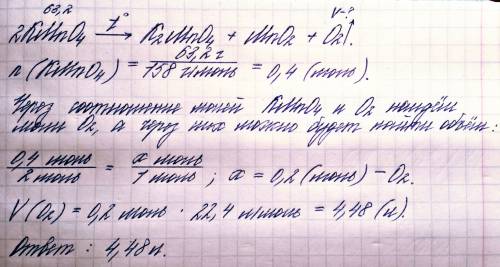 63,2 V-?
2KMnO₄ t°→ K₂MnO₄ + MnO₂ + O₂↑.
n(KMnO₄) = 63,2 г / 158 г/моль = 0,4 (моль).
Через соотношение молей KMnO₄ и O₂ найдём
моли O₂, а через них можно будет найти объём:
0,4 моль / 2 моль = x моль / 1 моль ; x = 0,2 (моль) – O₂.
V(O₂) = 0,2 моль · 22,4 л/моль = 4,48 (л).
Ответ: 4,48 л.